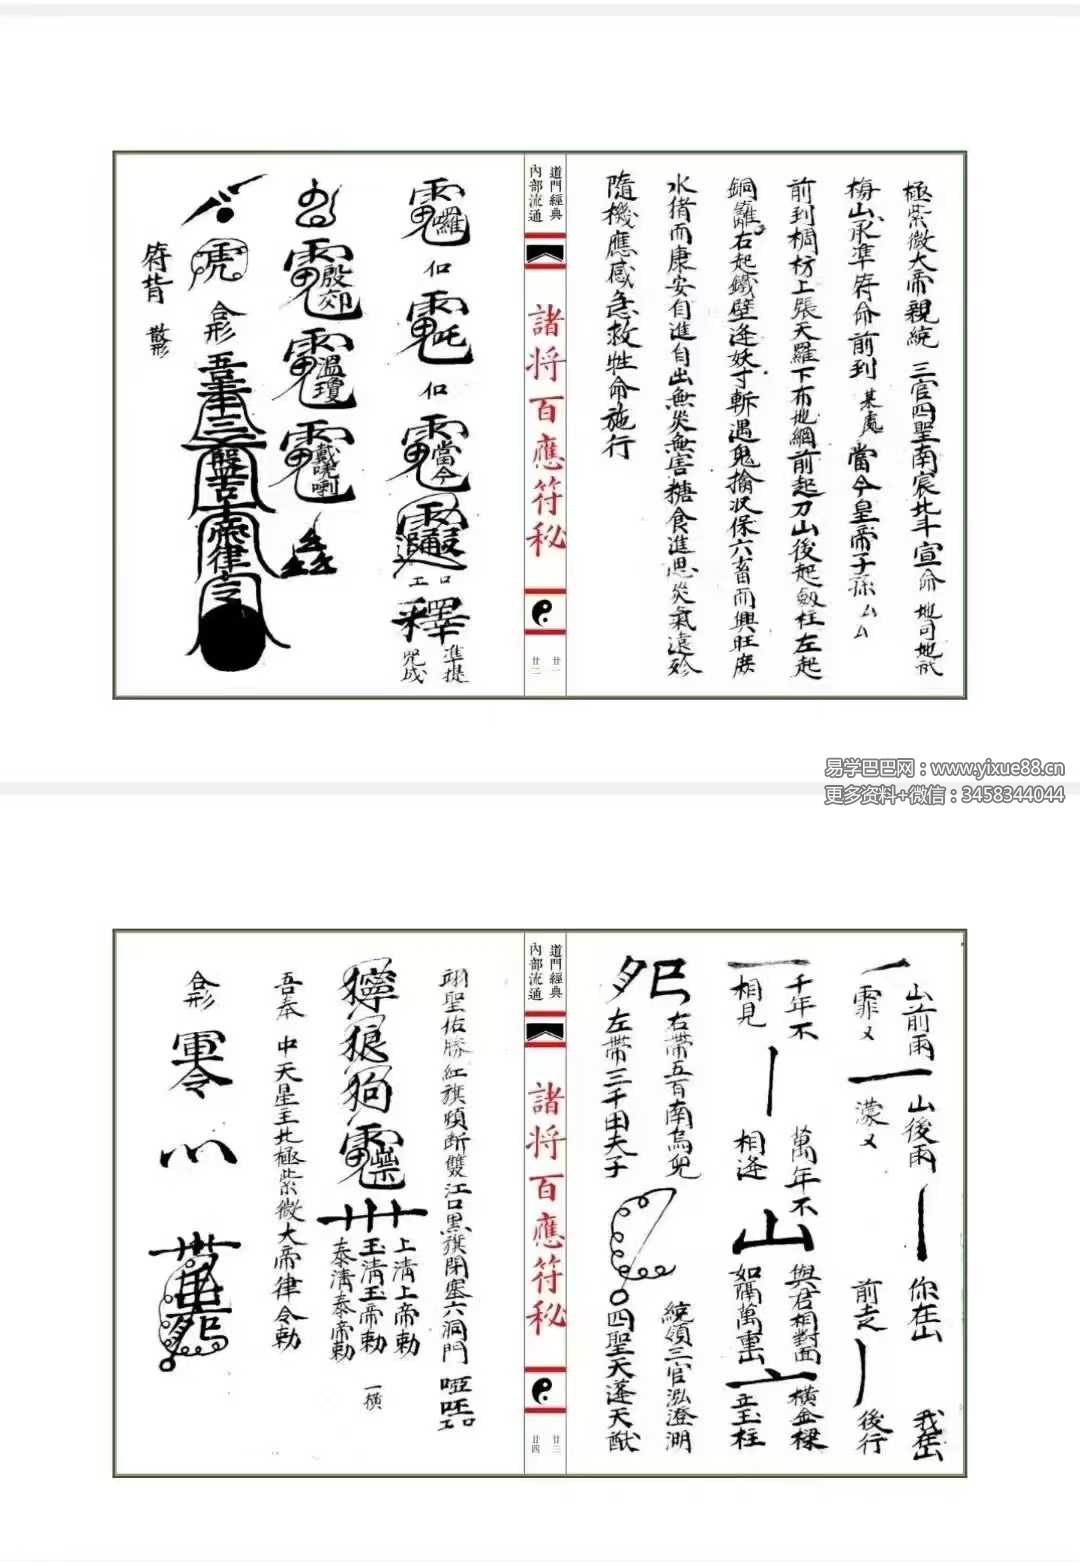 極紫微大帝親統 三官四聖南宸北斗宣命 地司地祇
梅山永準符命前到 某處 當今皇帝子孫厶厶
前到欄枋上張天羅下布地網前起刀山後起劍柱左起
銅籬右起鐵壁逢妖寸斬遇鬼擒收保六畜而興旺庶
水猪而康安自進自出無災無害糖食進思災氣遠殄
隨機應感急救牲命施行
道門經典
內部流通
諸將百應符秘
廿一
廿二
囉
和
吒
和
當今
釋
準提
咒成
殷郊
溫瓊
虎
合形
吾奉三盤古帝律令
符背
散形
易学巴巴网：www.yixue88.cn
更多资料+微信：3458344044
山前雨
霏〤
山後雨
濛〤
你在山
前走
我在山
後行
千年不
相見
萬年不
相逢
山
與君相對面
如隔萬重山
橫金樑
立玉柱
右帶五百南烏兒
左帶三千田夫子
統領三官泓澄湖
四聖天蓬天猷
道門經典
內部流通
諸將百應符秘
廿三
廿四
翊聖佑勝紅旗頭斷雙江口黑旗閉塞六洞門
獰狼狗
上清上帝勅
玉清玉帝勅
泰清泰帝勅
一橫
吾奉 中天星主北極紫微大帝律令勅
合形